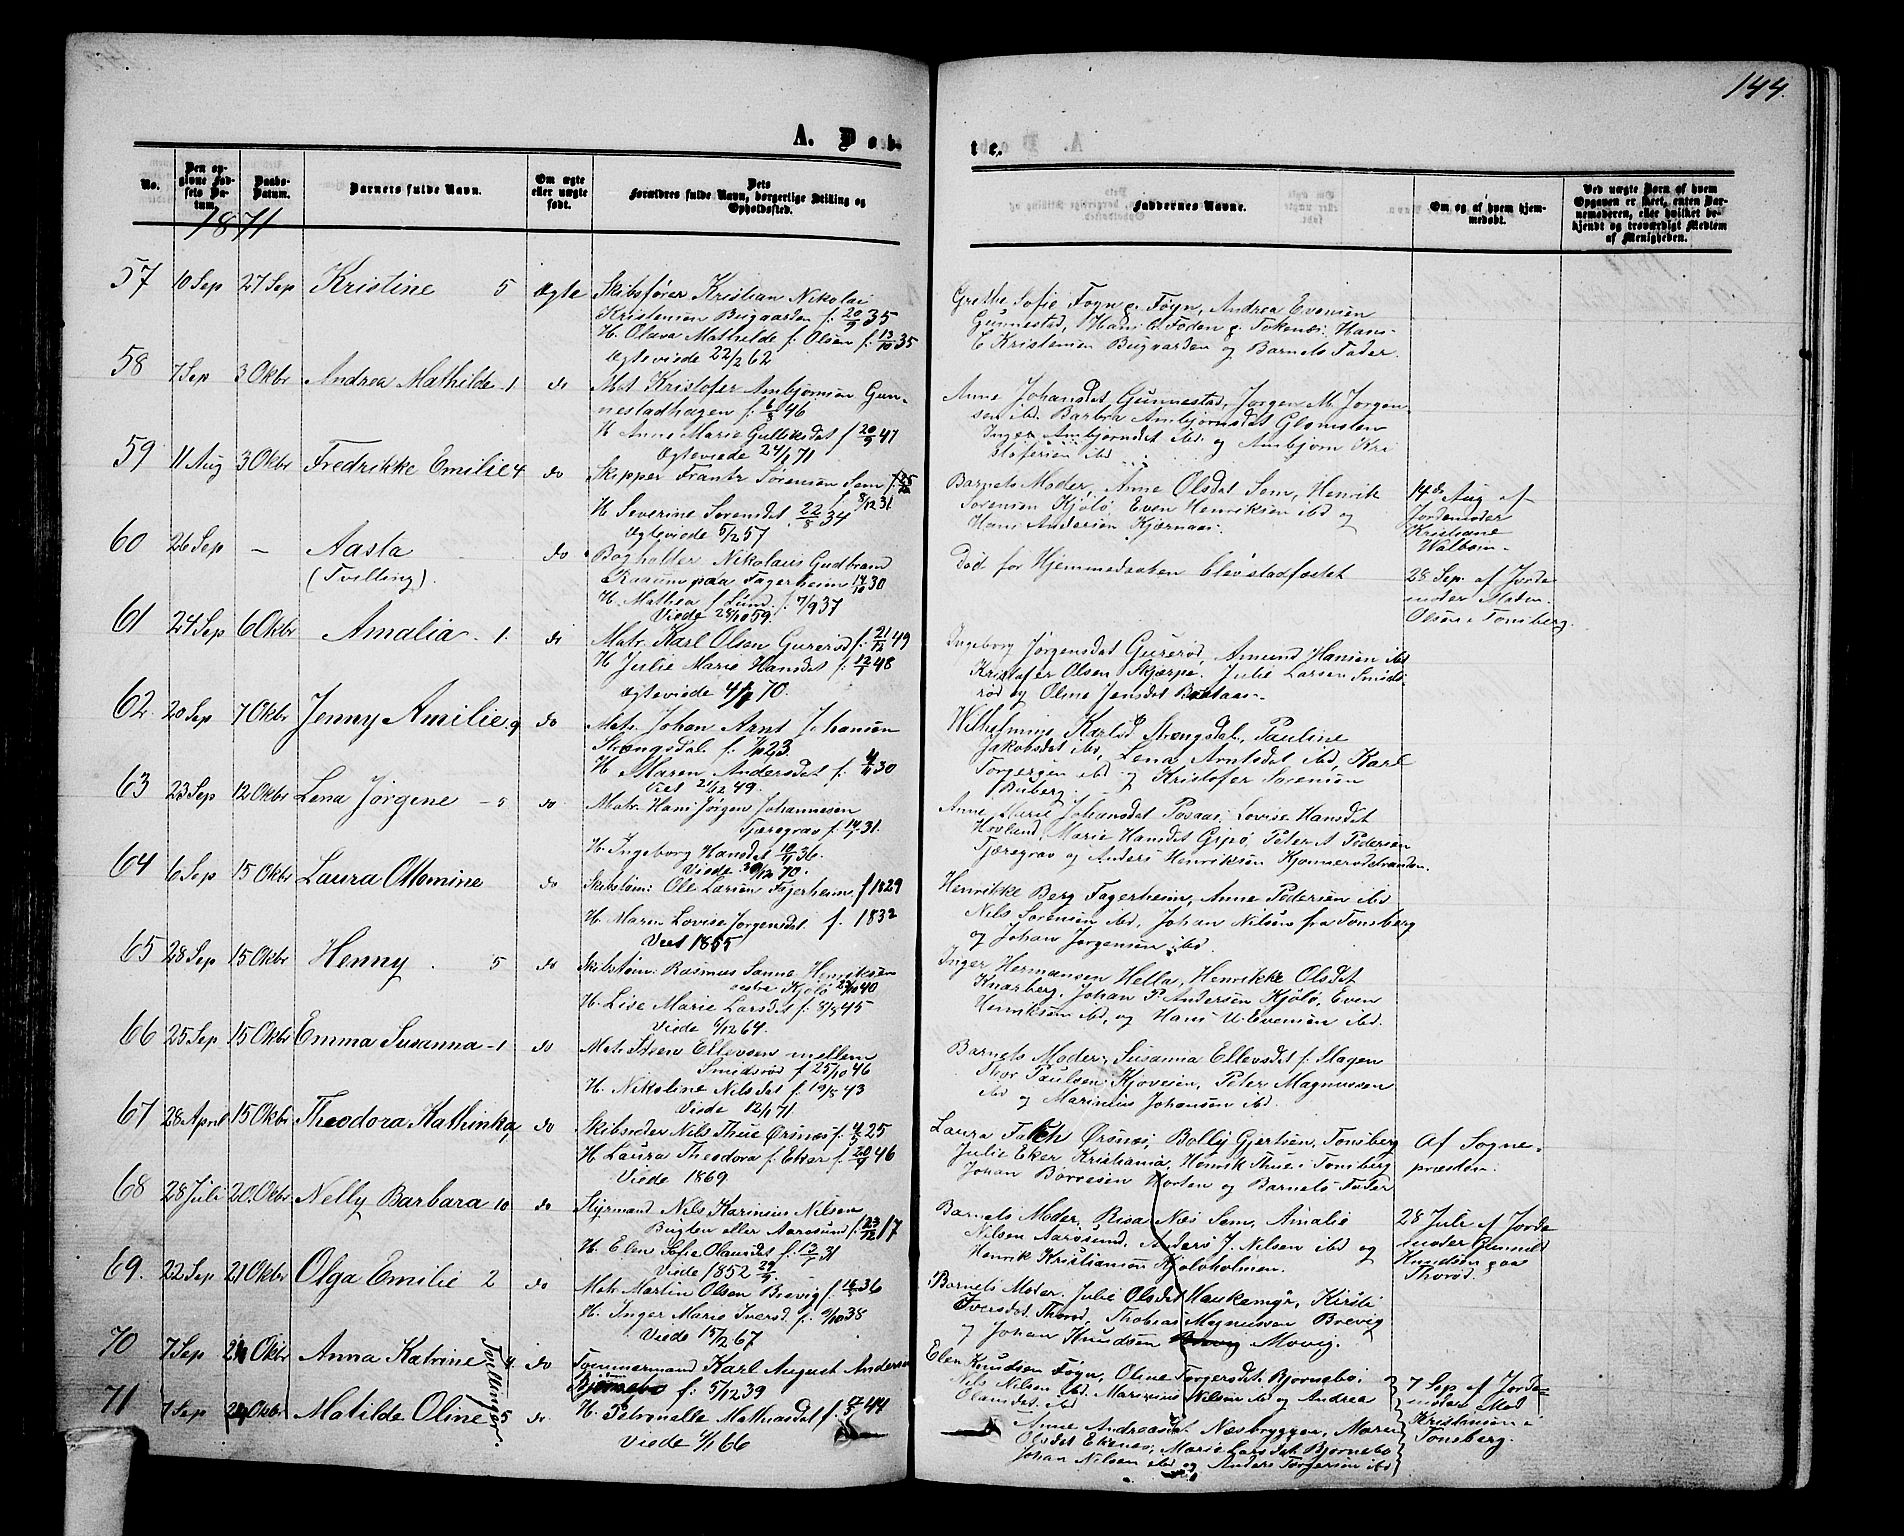 144.
A. Døb-
te.
No.
Den op-
givne Fød-
sels Da-
tum.
Daabs-
Datum.
Barnets fulde Navn.
Om ægte
eller uægte
født.
Dets
Forældres fulde Navn, borgerlige Stilling og
Opholdssted.
Faddernes Navne.
Om og af hvem hjem-
medøbt.
Ved uægte Børn af hvem
Opgaven er skeet, enten Bar-
nemoderen, eller hvilket be-
kjendt og troværdigt Medlem
af Menigheden.
1871
57 10 Sep 27 Sep Kristine 5 ægte Skibsfører Kristian Nikolai
Kristensen Bugaarden f. 20/9 35
H. Olava Mathilde f. Olsen f. 13/10 35
Ægteviede 22/2 62
Grethe Sofie Foyn g. Føyn, Andrea Evensen
Gunnestad, Hans O. Foden g. Tokenæs, Hans
E Kristensen Bugaarden og Barnets Fader.
58 7 Sep 3 Oktbr Andrea Mathilde 1 do Mat. Kristofer Ambjørnsen Gun-
nestadhagen f. 6/8 46
H Anne Marie Gulliksdat f 20/9 47
Ægteviede 24/1 71
Anne Johansdat Gunnestad, Jørgen M. Jørgen-
sen ibd. Barbra Ambjørnsdat Glomsten
Inger Ambjørndat ibd. og Ambjørn Kri
stofersen ibd
59 11 Aug 3 Oktbr Fredrikke Emilie 4 do Skipper Frantz Sørensen Sem
f. 8/12 31
H Severine Sørensdat 22/8 34
Ægteviede 5/2 57
Barnets Moder, Anne Olsdat Sem, Henrik
Sørensen Kjøle, Even Henriksen ibd og
Hans Andersen Kjærnaas.
14de Aug af
Jordemoder
Kristiane
Walbom.
60 26 Sep – Aasta do Bogholder Nikolaus Gudbrand
(Tvilling). Kaaum paa Fagerheim 14/10 30
H. Mathea f. Lund. f. 7/9 37
Viede 28/10 59.
Død for Hjemmedaaben blev stadfæstet
28 Sep. af Jorde
moder Madm.
Olsen i Tønsberg.
61 24 Sep 6 Oktbr Amalia 1. do Matr. Karl Olsen Gurerød f. 21/12 49
H Julie Marie Hansdat f. 12/7 48
Ægteviede 4/11 70.
Ingeborg Jørgensdat Gurerød, Amund Hansen ibd
Kristofer Olsen Skjerpe. Julie Larsen Smids-
rød og Oline Jensdat Bastaas.
62. 20 Sep 7 Oktbr Jenny Amilie 9 do Matr. Johan Arnt Johansen
Strengsdal f. 23
H Maren Andersdat f. 30
Viet 49.
Wilhelmine Karlsd Strengsdal, Pauline
Jakobsdat ibd, Lena Arntsdat ibd, Karl
Torgersen ibd og Kristofer Sørensen
Buberg.
63 23 Sep 12 Oktbr Lena Jørgene 5 do Matr. Hans Jørgen Johannesen
Tjæregrav f. 14/7 31.
H. Ingeborg Hansdat 10/11 36.
Viede 30/12 70.
Anne Marie Johansdat Røsaas, Lovise Hansdat
Hovlund, Marie Hansdat Gipø, Peter A Pedersen
Tjæregrav og Anders Henriksen Kjonnerødstranden.
64 6 Sep 15 Oktbr Laura Ottomine do Skibstøm: Ole Larsen Fagerheim f 1829
H. Maren Lovise Jørgensdat f. 1832
Viet 1855
Henrikke Berg Fagerheim, Anne Pedersen ibd
Nils Sørensen ibd, Johan Nilsen fra Tønsberg
og Johan Jørgensen ibd.
65 28 Sep 15 Oktbr Henny 5 do Skibstøm: Rasmus Sanne Henriksen
østre Kjøle 40
H. Lise Marie Larsdat f. 8/8 45
Viede 6/12 64.
Inger Hermansen Hella, Henrikke Olsdat
Knarberg, Johan P. Andersen Kjøle, Even
Henriksen ibd, og Hans U. Evensen ibd.
66 25 Sep 15 Oktbr Emma Susanna 1 do Mat. Steen Ellevsen mellem
Smidsrød f 25/10 46
H. Nikoline Nilsdat f. 19/8 43
Viede 12/1 71.
Barnets Moder, Susanna Ellevsdat f: Magen
Thor Paulsen Kjøvesen, Peter Magnussen
ibd og Marinius Johansen ibd.
67 28 April 15 Oktbr Theodora Kathinka do Skibsreder Nils Thue Ørsnæs f. 25
H. Laura Theodora f. Eker f. 20/9 46
Viede 1869
Laura Falch Ørsnæs, Bolly Gjertsen, Tønsberg
Julie Eker Kristiania, Henrik Thue i Tønsberg
Johan Børresen Horten og Barnets Fader
Af Sogne-
præsten.
68 28 Juli 20. Oktbr Nelly Barbara 10 do Styrmand Nils Karinius Nilsen
Bugten eller Aarøsund f. 23/12 17
H. Elen Sofie Olausdat f. 12/7 31
Viede 1852 29/9
Barnets Moder, Risa Næs Sem, Amalie
Nilsen Aarøsund, Anders J. Nilsen ibd og
Henrik Kristiansen Kjøleholmen.
28 Juli af Jorde
moder Gunnild
Knudsen paa
Thorød.
69. 22 Sep 21 Oktbr Olga Emilie 2 do Matr Martin Olsen Brevig f. 16/5 36
H. Inger Marie Iversd. f. 9/10 38
Viede 15/2 67
Barnets Moder. Julie Olsdat Haukemyr, Kirsti
Iversdat Thorød, Thobias Magnussen Brevig
og Johan Knudsen Brevig Movig.
70 7 Sep 21 Oktbr Anna Katrine 4 do Tømmermand Karl August Anderse
Bjørnebo f: 5/12 39
Tvillinger.
Elen Knudsen Føyn, Oline Torgersdat Bjornebo,
Nils Nilsen ibd. Marinius Nilsen ibd og Andrea
Olausdat ibd
7 Sep af Jorde-
moder Mad
Kristiansen i
Tønsberg.
71 7 Sep 21 Oktbr Matilde Oline 5 do H. Petronelle Mathiasdat f. 44
Viede 6/1 66
Anne Andreasdt Næsbryggen, Maren
Olsdat Ekenes, Marie Larsdat Bjornebo
Johan Nilsen ibd og Anders Torgersen ibd